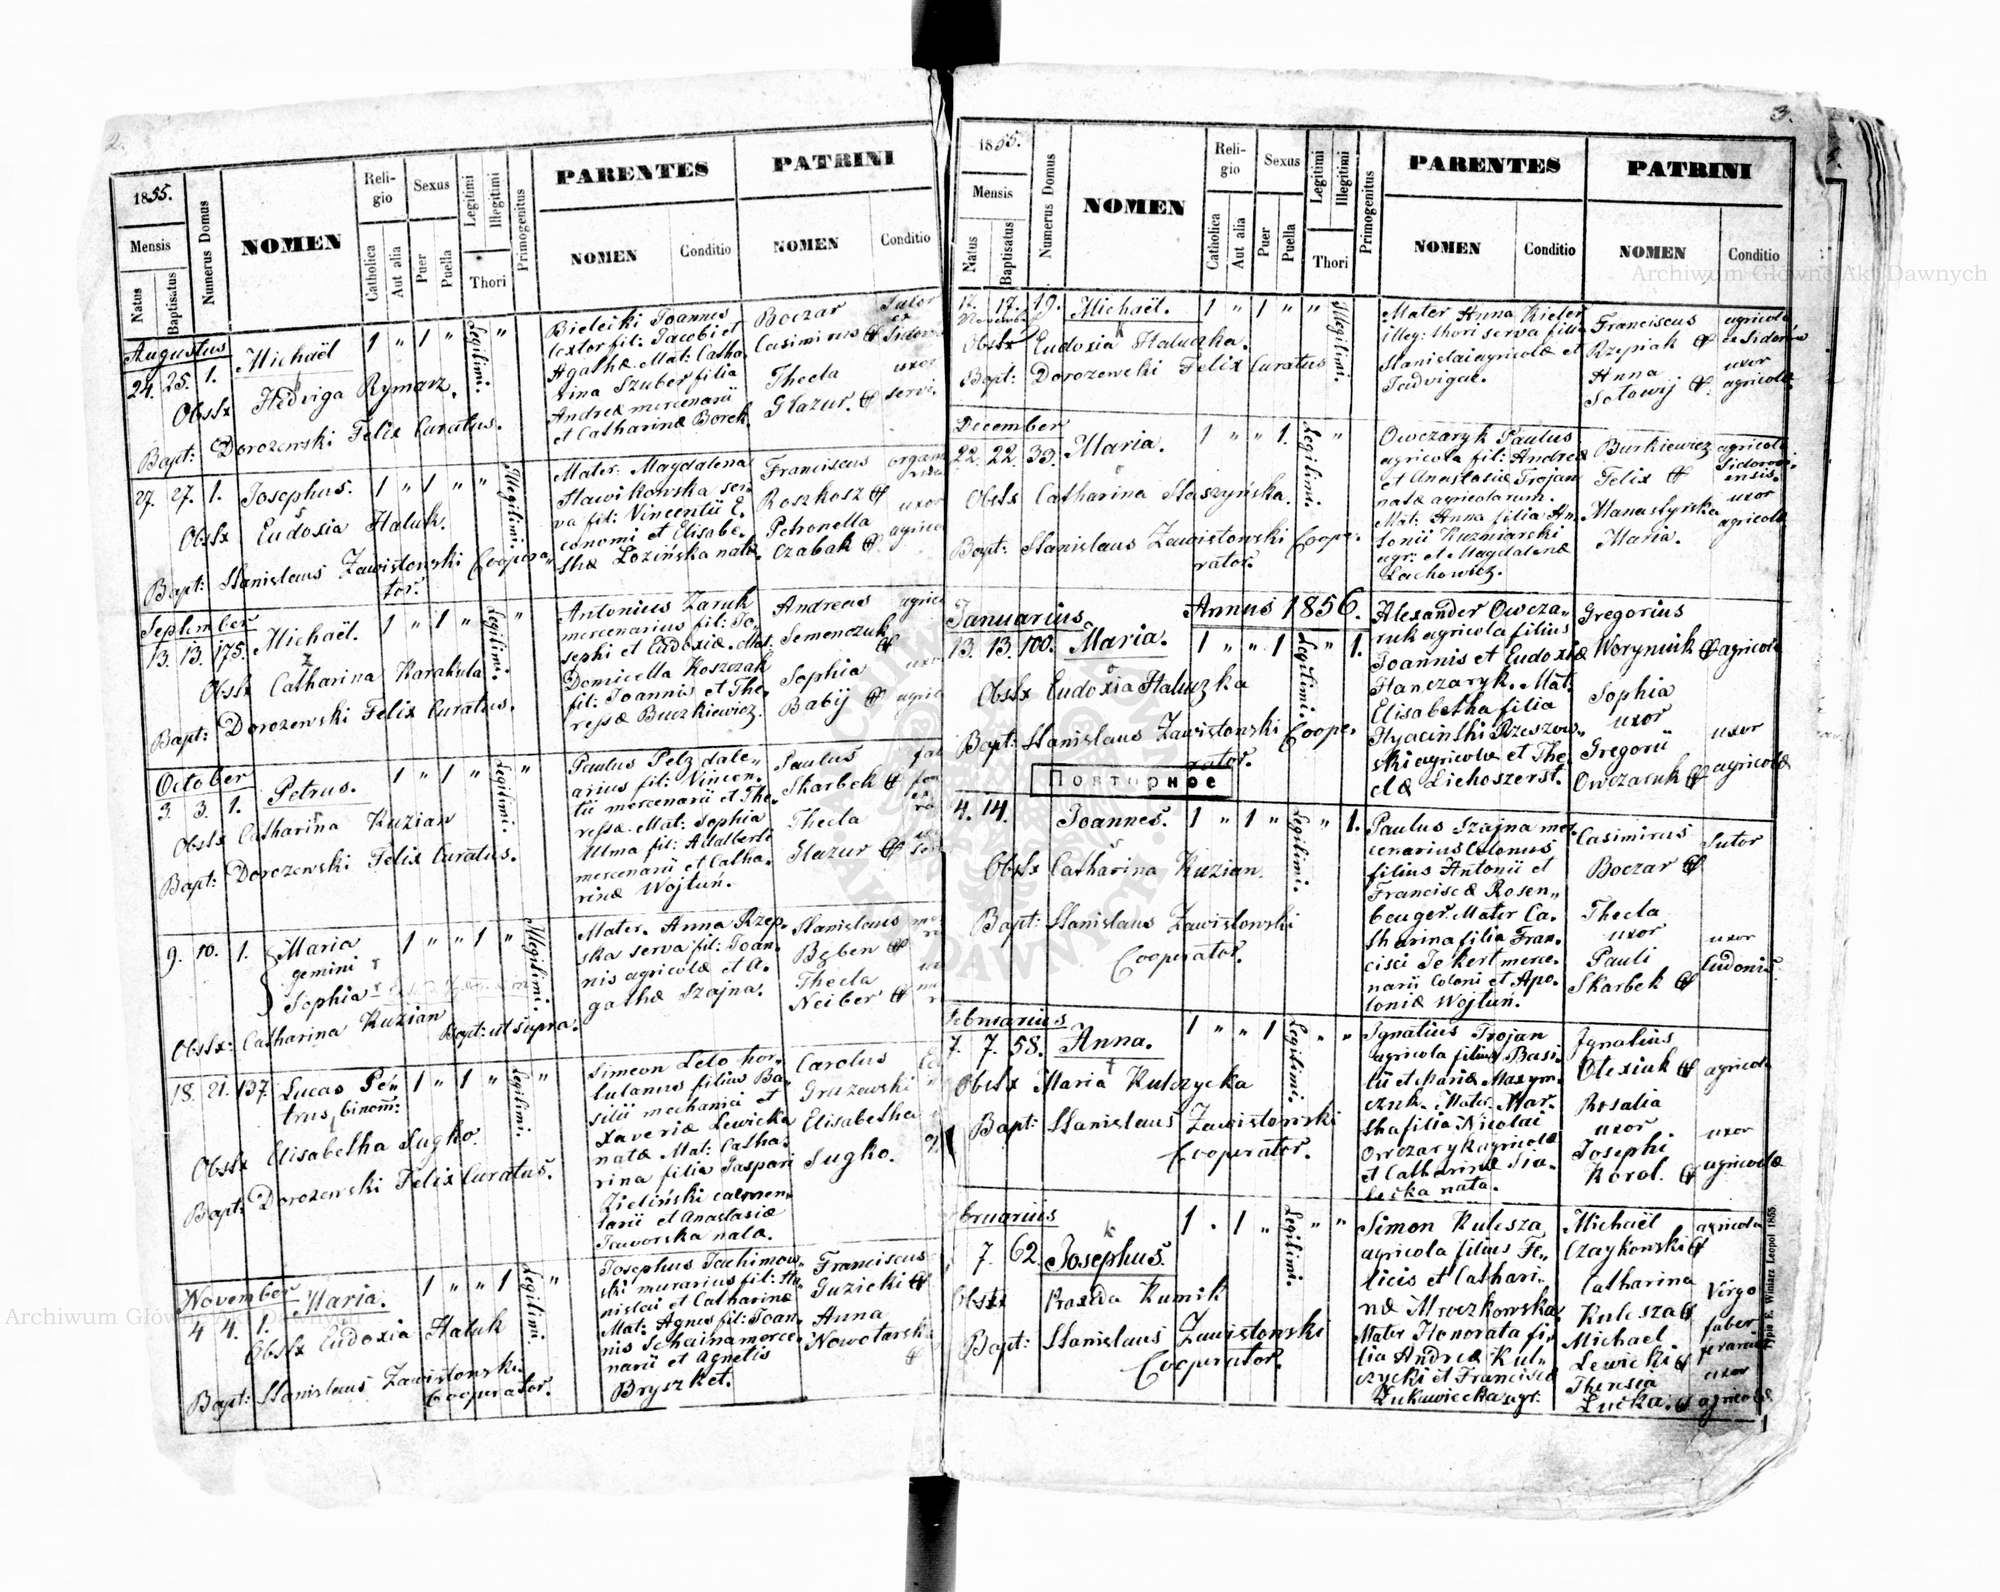 2.
1855.
Mensis
Natus
Baptisatus
Numerus Domus
NOMEN
Religio
Catholica
Aut alia
Sexus
Puer
Puella
Legitimi
Illegitimi
Thori
Primogenitus
PARENTES
NOMEN
Conditio
PATRINI
NOMEN
Conditio
Augustus
24. 25. 1. Michaël 1 " 1 " Legitimi. "
Obstx Hedviga Rymarz.
Bapt: Dorozewski Felix Curatus.
Bieleiki Joannes
textor fil: Jacobi et
Agathæ. Mat: Catha-
rina Szuber filia
Andreæ mercenarii
et Catharinæ Borek.
Boczar
Casimirus &
Thecla
Glazur. &
Sutor
uxor
servi.
27. 27. 1. Josephus. 1 " 1 " " Illegitimi.
Obstx Eudoxia Haluk.
Bapt: Stanislaus Zawistowski Coopera-
tor.
Mater: Magdalena
Sławikowska ser-
va fil: Vincentii E-
conomi et Elisabe-
thæ Łozińska natæ.
Franciscus
Roszkosz &
Petronella
Czabak &
uxor
September
13. 13. 175. Michaël. 1 " 1 " Legitimi. "
Obstx Catharina Karakula
Bapt: Dorozewski Felix Curatus.
Antonius Zaruk
mercenarius fil: Jo-
sephi et Eudoxiæ. Mat:
Domicella Koszczak
fil: Joannis et The-
resæ Buczkiewicz.
Andreas
Semenczuk
&
Sophia
Babij &
October
3. 3. 1. Petrus. 1 " 1 " Legitimi. "
Obstx Catharina Kuzian
Bapt: Dorozewski Felix Curatus.
Paulus Pelz dale-
arius fil: Vincen-
tii mercenarii et The-
resæ. Mat: Sophia
Ulma fil: Adalberti
mercenarii et Catha-
rinæ Wojtuń.
Paulus
Skarbek &
Thecla
Glazur &
9. 10. 1. Maria 1 " " 1 " Illegitimi.
gemini
Sophia
Obstx: Catharina Kuzian
Bapt: ut supra.
Mater. Anna Rzep-
ska serva fil: Joan-
nis agricolæ et A-
gathæ Szajna.
Stanislaus
Bęben &
Thecla
Neiber &
18. 21. 137. Lucas Pe- 1 " 1 " Legitimi. "
trus, binom:
Obstx Elisabetha Sugko.
Bapt: Dorozewski Felix Curatus.
Simeon Leto hor-
tulanus filius Ba-
silii mechanici et
Xaveriæ Lewicka
natæ Mat: Catha-
rina filia Gaspari
Zieliński cæmen-
tarii et Anastasiæ
Jaworska nata.
Carolus
Gruzewski
Elisabetha
Sugko.
November
4 4. 1. Maria. 1 " " 1 Legitimi. "
Obstx Eudoxia Haluk
Bapt: Stanislaus Zawistowski
Cooperator.
Josephus Jachimow-
ski murarius fil: Sta-
nislai et Catharinæ
Mat: Agnes fil: Joan-
nis Schaina merce-
narii et Agnetis
Bryszket.
Franciscus
Guzicki &
Anna
Nowotarska
&
3.
1855.
Mensis
Natus
Baptisatus
Numerus Domus
NOMEN
Religio
Catholica
Aut alia
Sexus
Puer
Puella
Legitimi
Illegitimi
Thori
Primogenitus
PARENTES
NOMEN
Conditio
PATRINI
NOMEN
Conditio
17. 17. 19. Michaël. 1 " 1 " " Illegitimi.
Obstx Eudoxia Haluzka.
Bapt: Dorozewski Felix Curatus
Mater Anna Kieler
illeg: thori serva filia
Stanislai agricolæ et
Jadvigæ.
Franciscus
Rzepiak &
Anna
Sotowij &
agricola
de Sidorów
uxor
agricolæ
December
22. 22. 39. Maria. 1 " " 1. Legitimi. "
Obstx Catharina Staszyńska.
Bapt: Stanislaus Zawistowski Coope-
rator.
Owczaryk Paulus
agricola fil: Andreæ
et Anastasiæ Trojan
natæ agricolarum.
Mat: Anna filia An-
tonii Kuzniarski
agr: et Magdalenæ
Lachowicz.
Burkiewicz
Felix &
Manastyrska
Maria.
agricola
Sidorov-
ensis.
uxor
agricolæ
Annus 1856.
Januarius
13. 13. 100. Maria. 1 " " 1 Legitimi. " 1.
Obstx Eudoxia Haluzka
Bapt: Stanislaus Zawistowski Coope-
rator.
Повторное
Alexander Owcza-
ruk agricola filius
Joannis et Eudoxiæ
Hanczaryk. Mat:
Elisabetha filia
Hyacinthi Rzeszow-
ski agricolæ et The-
clæ Lichoszerst.
Gregorius
Woryniuk &
Sophia
uxor
Gregorii
Owczaruk &
agricola
uxor
agricolæ
4. 14. Joannes. 1 " 1 " Legitimi. " 1.
Obstx Catharina Kuzian.
Bapt: Stanislaus Zawistowski
Cooperator.
Paulus Szajna mer-
cenarius Colonus
filius Antonii et
Franciscæ Rosen-
beuger. Mater Ca-
tharina filia Fran-
cisci Tekert merce-
narii Coloni et Apo-
loniæ Wojtuń.
Casimirus
Boczar &
Thecla
uxor
Pauli
Skarbek &
Sutor
uxor
Februarius
7. 7. 58. Anna. 1 " " 1 Legitimi. " "
Obstx Maria Kulczycka
Bapt: Stanislaus Zawistowski
Cooperator.
Ignatius Trojan
agricola filius Basi-
lii et Mariæ Maxym-
czuk. Mater. Mar-
tha filia Nicolai
Owczaryk agricolæ
et Catharinæ Sia-
lecka nata.
Ignatius
Olexiuk &
Rosalia
uxor
Josephi
Korol. &
agricola
uxor
agricolæ
bruarius
7. 62. Josephus. 1 " 1 " Legitimi. " "
Obstx Praxeda Kumik
Bapt: Stanislaus Zawistowski
Cooperator.
Simon Kulesza
agricola filius Fe-
licis et Cathari-
næ Mroczkowska,
Mater Honorata fi-
lia Andreæ Kul-
czycki et Franciscæ
Zukawiecka agr:
Michaël
Czaykowski &
Catharina
Kulesza &
Michael
Lewicki &
Theresia
Lucka. &
agricola
Virgo
faber
uxor
agricolæ
Typis E. Winiarz Leopol 1855.
Archiwum Główne Akt Dawnych
Archiwum Główne Akt Dawnych